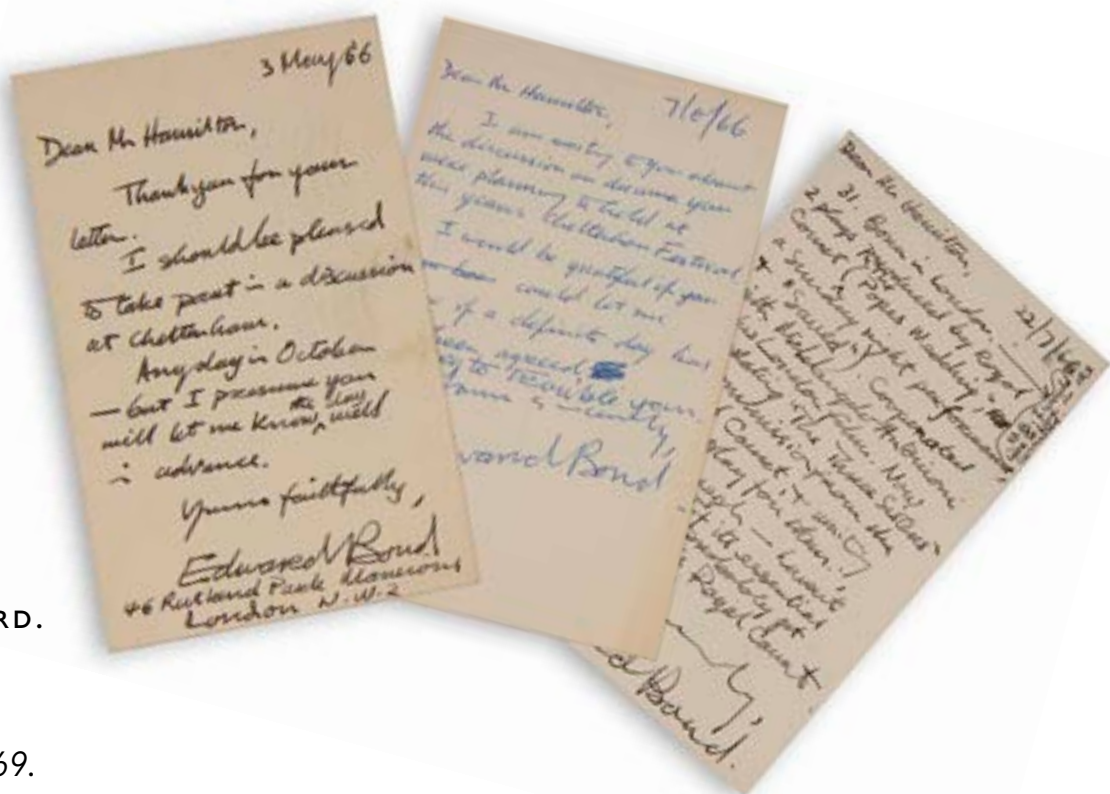 3 May 66
Dear Mr Hamilton,
Thankyou for your
letter.
I should be pleased
to take part in a discussion
at Cheltenham.
Any day in October
— but I presume you
will let me know, the day, well
in advance.
Yours faithfully,
Edward Bond
46 Rutland Park Mansions
London N.W.2
Dear Mr Hamilton,
7/6/66
I am writing to you about
the discussion on drama you
were planning to hold at
this years Cheltenham Festival
I would be grateful if you
could let me
if a definite day has
been agreed
to trouble you.
Edward Bond
Dear Mr Hamilton,
22/7/66
31. Born in London.
2 plays produced by Royal
Court ("Popes Wedding",
a Sunday night performance,
+ "Saved"). Cooperated
with
"The Three Sisters"
Court +
play for them.
Royal Court
Bond.
RD.
69.